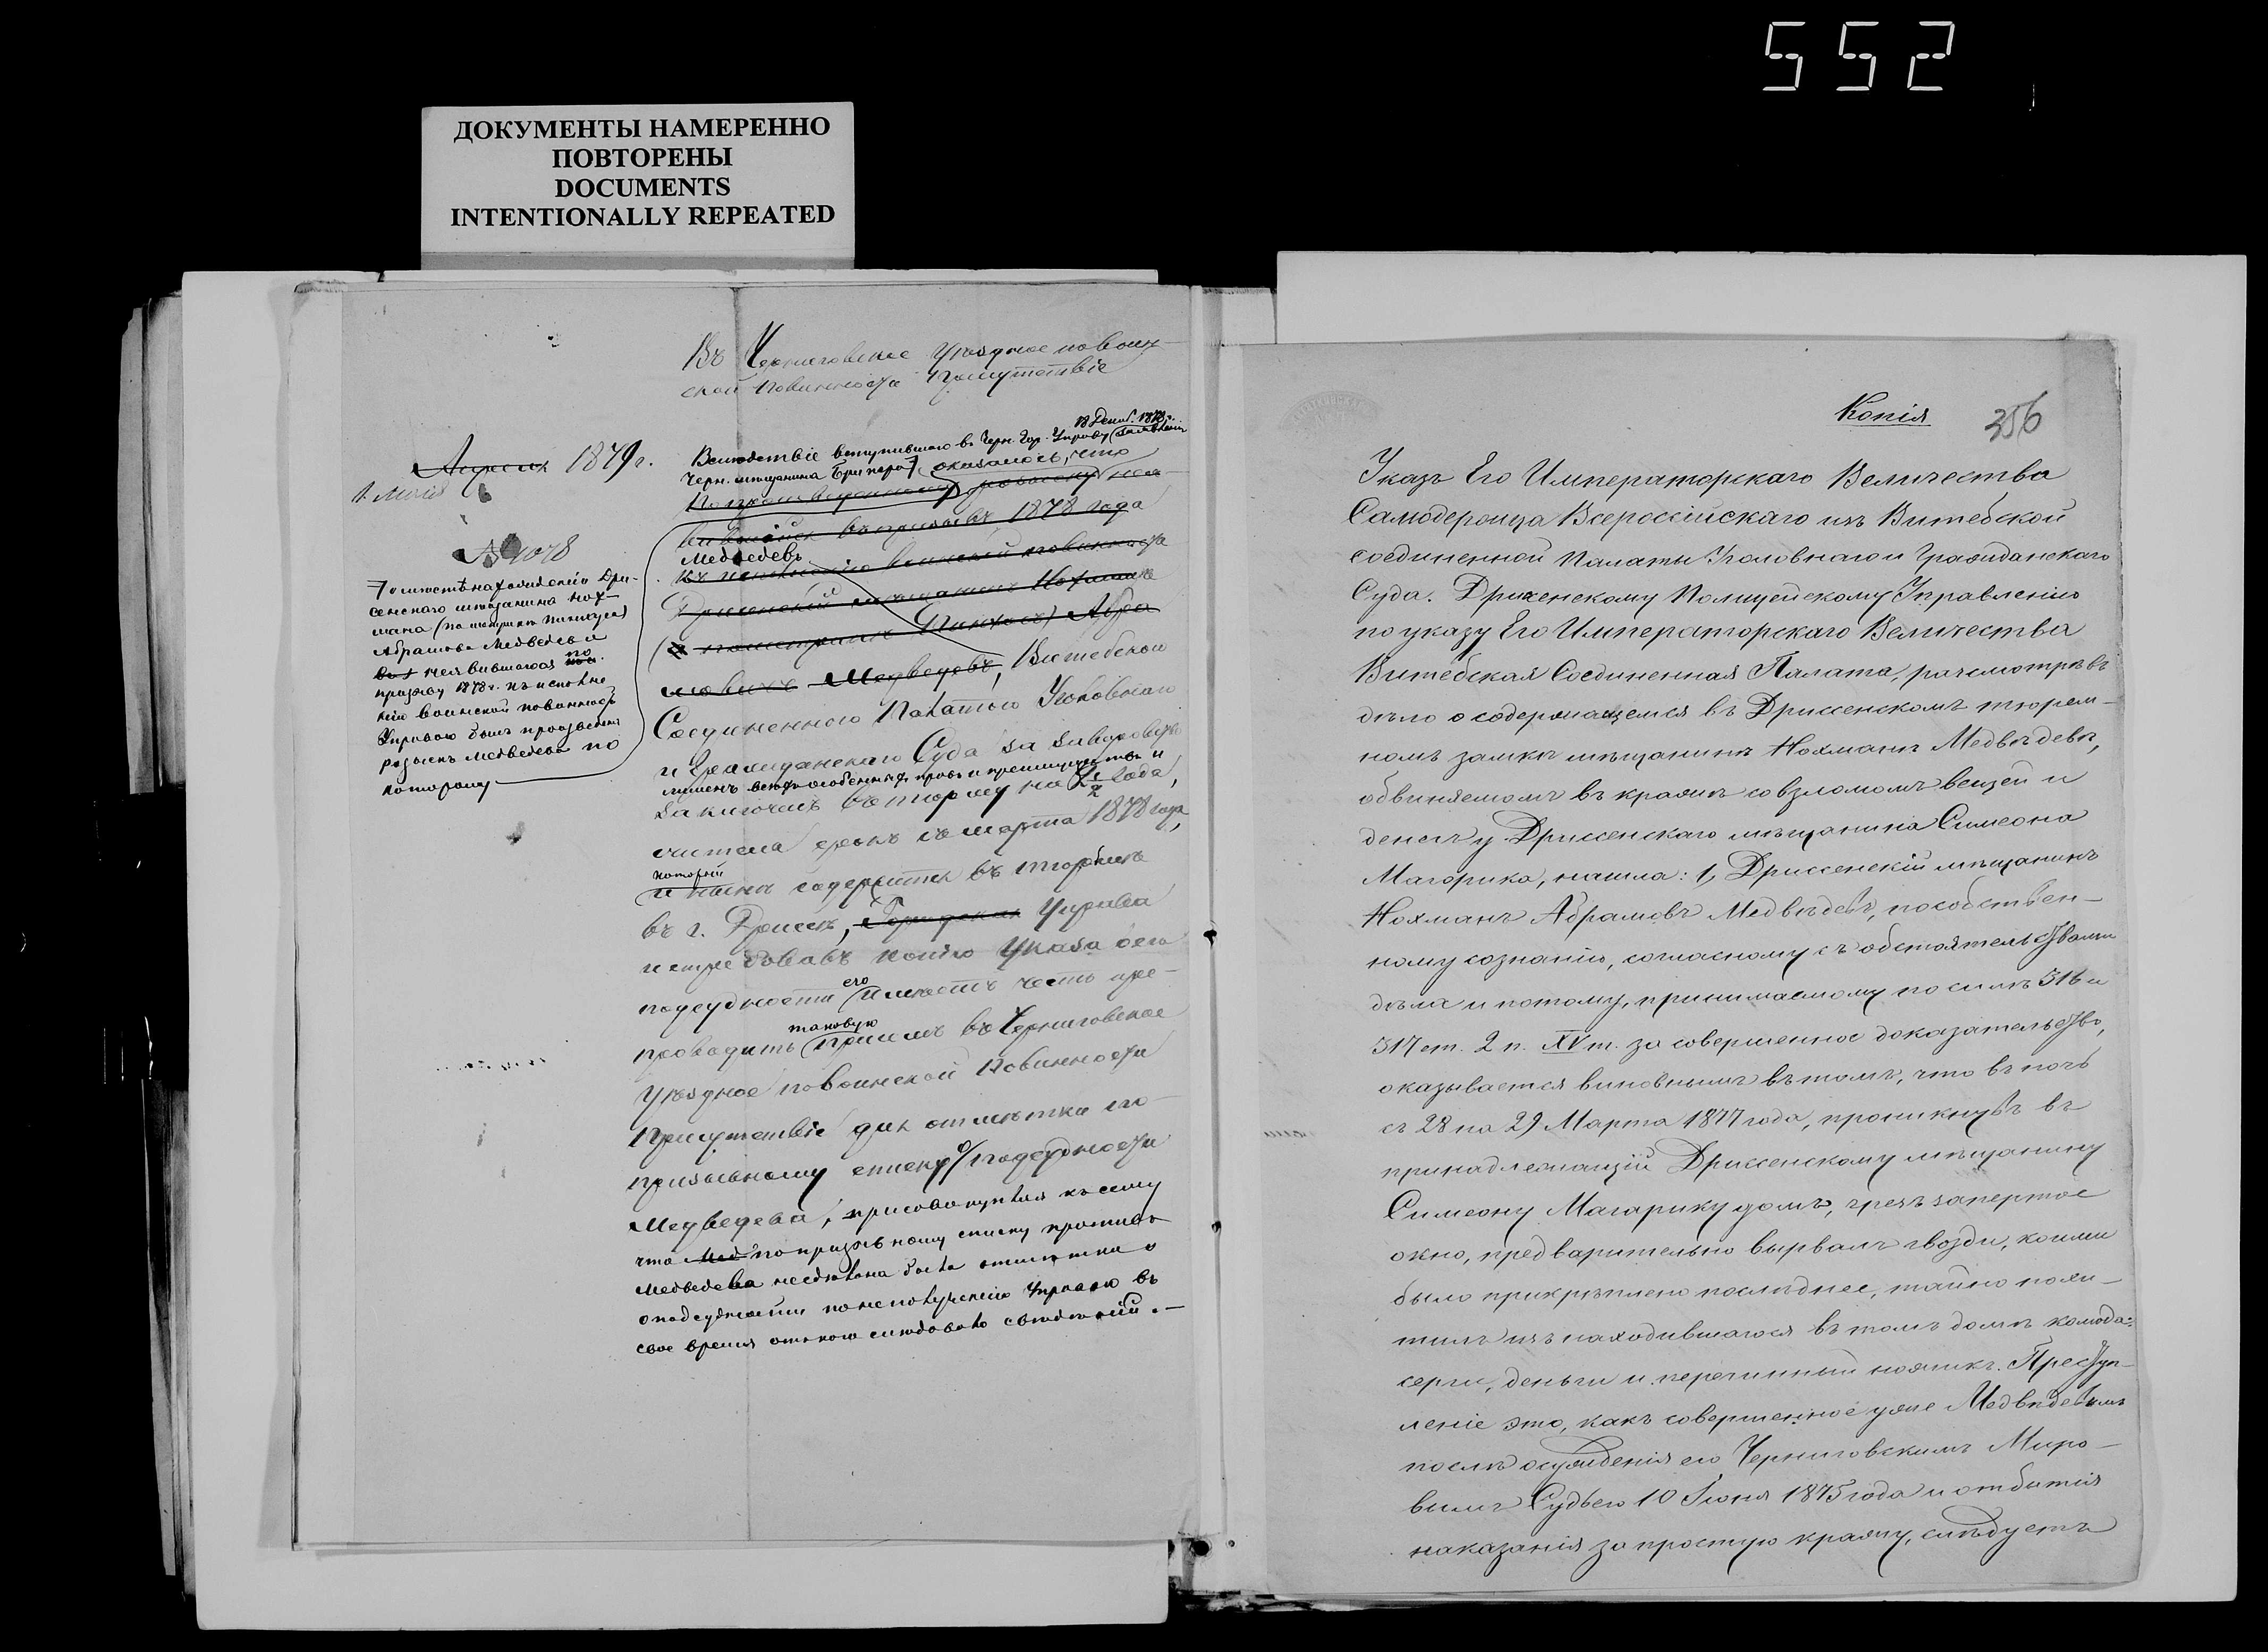 552
ДОКУМЕНТЫ НАМЕРЕННО
ПОВТОРЕНЫ
DOCUMENTS
INTENTIONALLY REPEATED
Въ Черниговское Уѣздное по воин-
ской повинности Присутствіе
Апрѣля 1879 г.
1. Мая
№ 4078
18 Декаб. 1878 г.
Вслѣдствіе вступившаго въ Черн. Гор. Управу заявленія
Черн. мѣщанина оказалось, что
въ призывѣ 1878 года
Медвѣдевъ
къ исполненію воинской повинности
Дриссенскій мѣщанинъ Нохманъ
(по метрикѣ Пинхасъ) Абра
мовичъ Медведевъ, Витебской
Соединенною Палатою Уголовнаго
и Гражданскаго Суда за
лишенъ всѣхъ особенныхъ правъ и преимуществъ и
заключенъ въ тюрьму на 2½ года,
считая срокъ съ марта 1878 года,
который
и нынѣ содержится въ тюрьмѣ
въ г. Дриссѣ, Городская Управа
истребовавъ копію Указа о его
подсудности его имѣетъ честь пре-
проводить таковую при семъ въ Черниговское
Уѣздное по воинской Повинности
Присутствіе для отмѣтки по
призывному списку о подсудности
Медведева, присовокупляя къ сему
что Мед по призывному списку противъ
Медведева несдѣлана была отмѣтка
о подсудности по неполученію Управою въ
свое время о томъ свѣдѣній. —
о мѣстѣ нахожденія Дри-
сенскаго мѣщанина Нох-
мана (по метрикѣ Пинхуса)
Абрамова Медведева
неявившагося по
призыву 1878 г. къ исполне
нію воинской повинности
Управою былъ произведенъ
розыскъ Медведева по
которому
Копія
356
Указъ Его Императорскаго Величества
Самодержца Всероссійскаго изъ Витебской
соединенной Палаты Уголовнаго и Гражданскаго
Суда. Дрисенскому Полицейскому Управленію
по указу Его Императорскаго Величества
Витебская Соединенная Палата, разсмотрѣвъ
дѣло о содержащемся въ Дриссенскомъ тюрем-
номъ замкѣ мѣщанинѣ Нохманѣ Медвѣдевѣ,
обвиняемомъ въ кражѣ со взломомъ вещей и
денегъ у Дриссенскаго мѣщанина Симеона
Магорика, нашла: 1, Дриссенскій мѣщанинъ
Нохманъ Абрамовъ Медвѣдевъ, по собствен-
ному сознанію, согласному съ обстоятельствами
дѣла и потому, принимаемому по силѣ 316 и
317 ст. 2 п. XV т. за совершенное доказательство,
оказывается виновнымъ въ томъ, что въ ночь
съ 28 на 29 Марта 1877 года, проникнувъ въ
принадлежащій Дриссенскому мѣщанину
Симеону Магарику домъ, чрезъ запертое
окно, предварительно вырвалъ гвозди, коими
было прикрѣплено послѣднее, тайно похи-
тилъ изъ находившагося въ томъ домѣ комода:
серги, деньги и перочинный ножикъ. Преступ-
леніе это, какъ совершенное уже Медвѣдевымъ
послѣ осужденія его Черниговскимъ Миро-
вымъ Судьею 10 Іюня 1875 года и отбытія
наказанія за простую кражу, слѣдуетъ